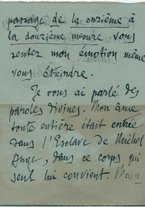 passage de la onzième à
la douzième mesure vous
sentez mon émotion même
vous étreindre.
Je vous ai parlé des
paroles divines. Mon âme
toute entière était entrée
dans l'Esclave de Michel
Ange, dans ce corps qui
seul lui convient.